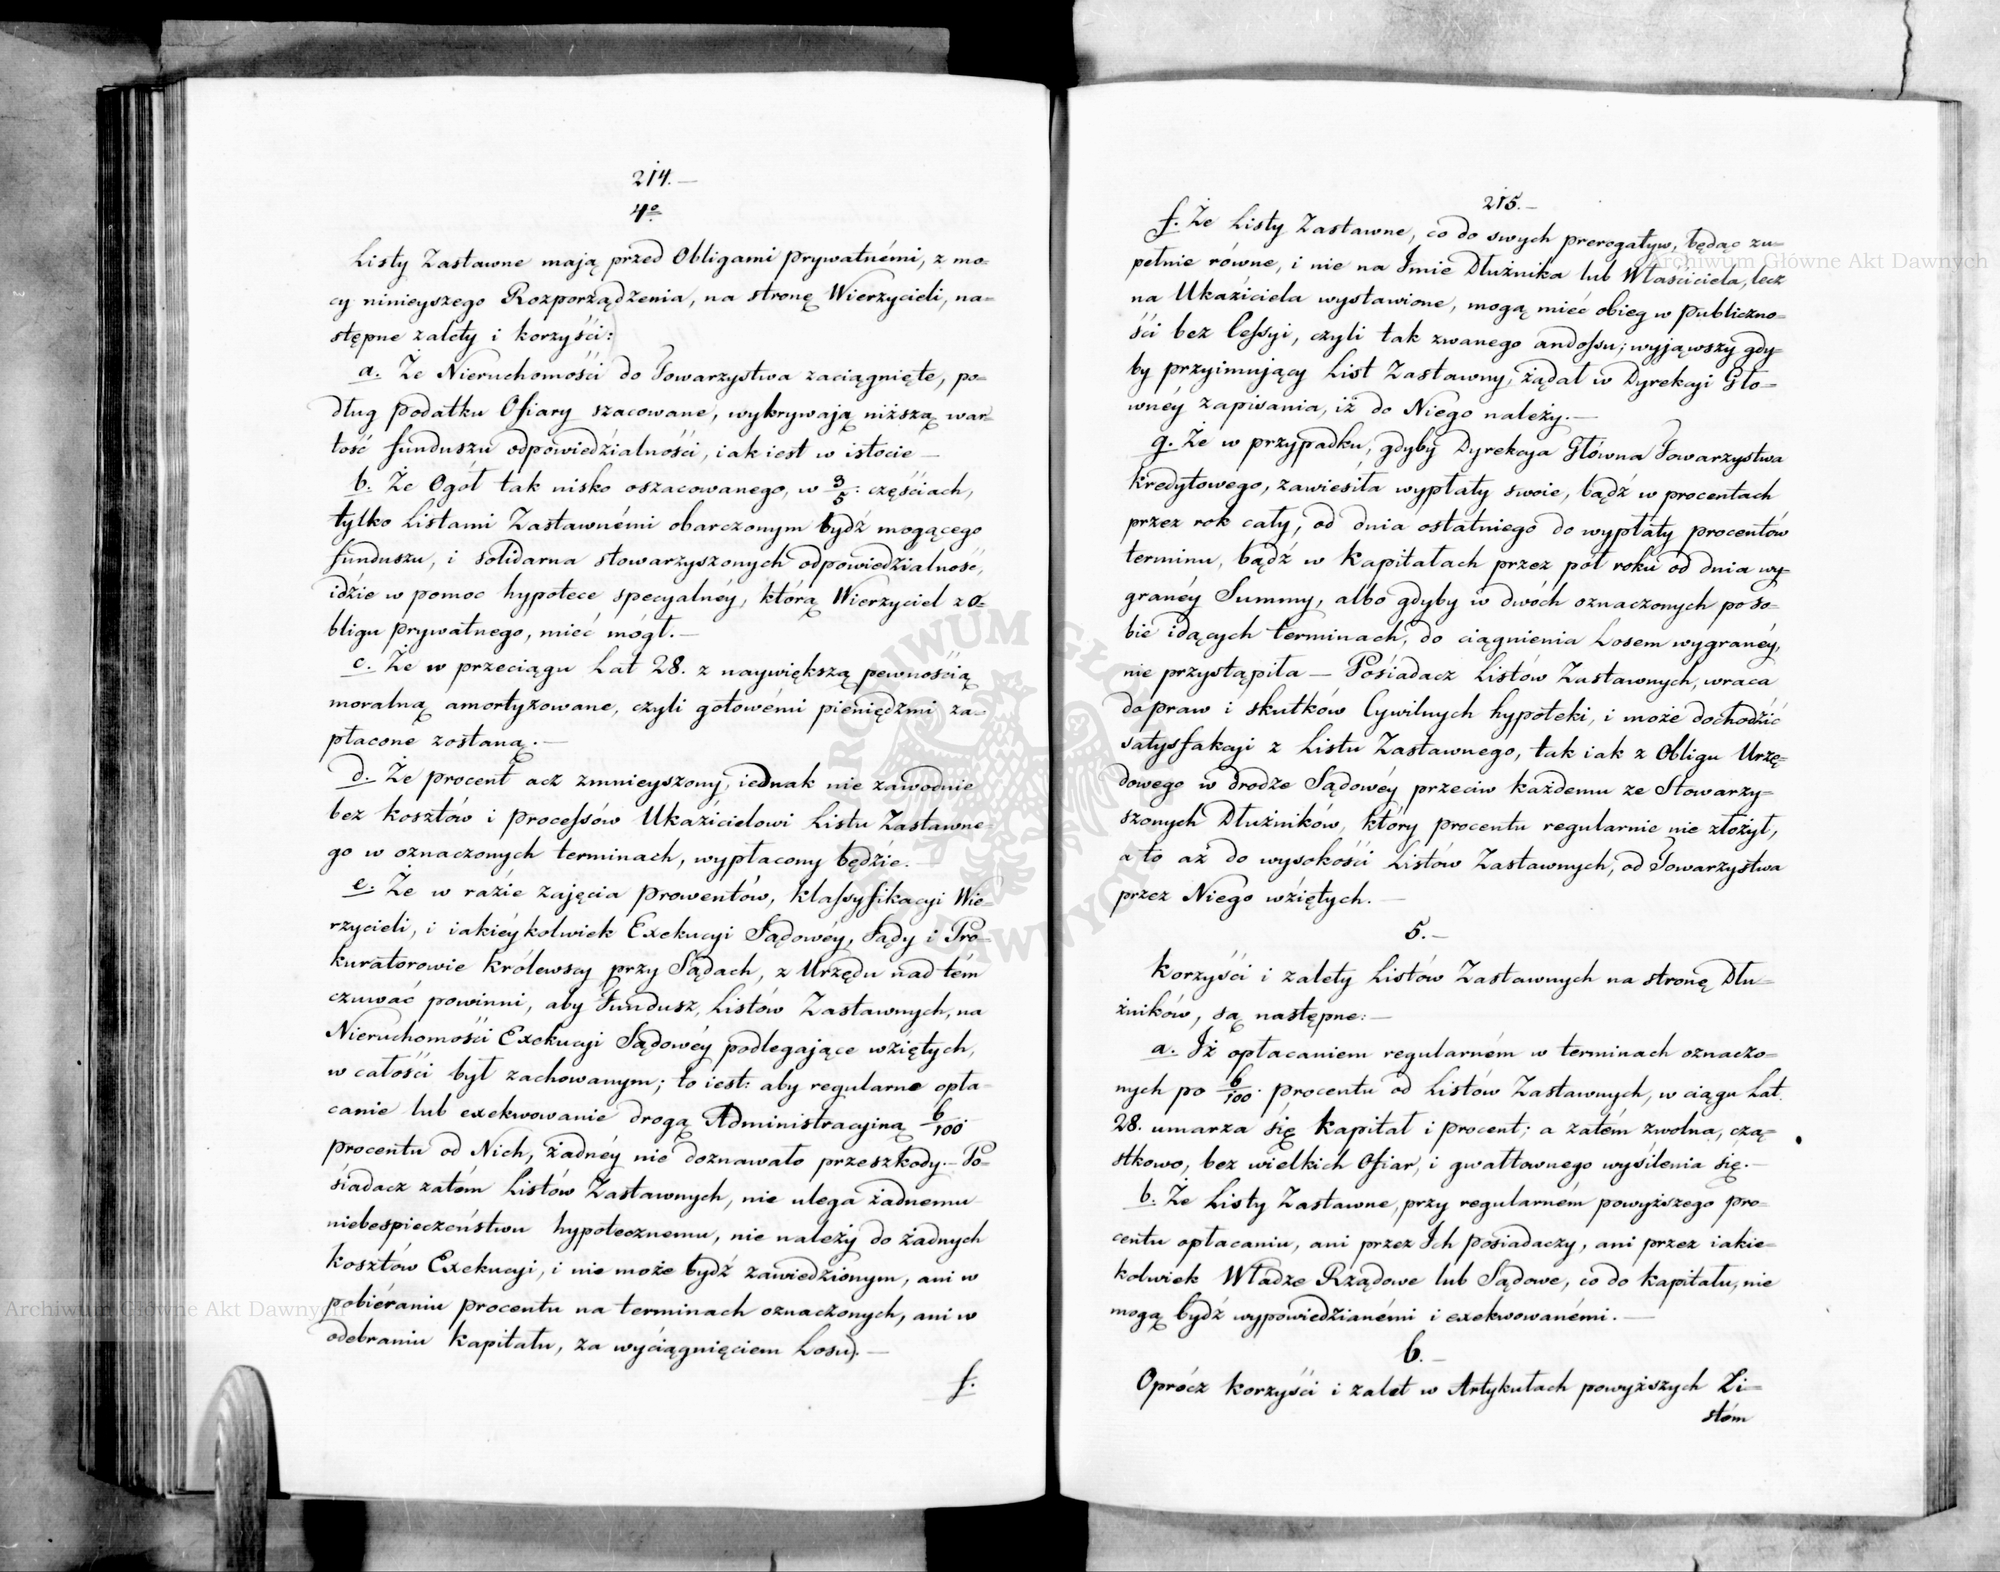 214.—
4º
Listy Zastawne mają przed Obligami prywatnémi, z mo=
cy ninieyszego Rozporządzenia, na stronę Wierzycieli, na=
stępne zalety i korzyści:
a. Że Nieruchomości do Towarzystwa zaciągnięte, po=
dług podatku Ofiary szacowane, wykrywają niższą war=
tość funduszu odpowiedzialności, iak iest w istocie —
b. Że Ogół tak nisko oszacowanego, w 3/5. częściach,
tylko Listami Zastawnémi obarczonym bydź mogącego
funduszu, i solidarna stowarzyszonych odpowiedzialność,
idzie w pomoc hypotece specyalnéy, którą Wierzyciel z O=
bligu prywatnego, mieć mógł.—
c. Że w przeciągu Lat 28. z naywiększą pewnością
moralną amortyzowane, czyli gotowémi pieniędzmi za=
płacone zostaną.—
d. Że procent acz zmnieyszony, iednak nie zawodnie
bez kosztów i processów Ukazicielowi Listu Zastawne=
go w oznaczonych terminach, wypłacony będzie.—
e. Że w razie zajęcia prowentów, klassyfikacyi Wie=
rzycieli, i iakiéykolwiek Exekucyi Sądowéy, Sądy i Pro=
kuratorowie Królewscy przy Sądach, z Urzędu nad tém
czuwać powinni, aby Fundusz, Listów Zastawnych, na
Nieruchomości Exekucyi Sądowéy podlegające wziętych,
w całości był zachowanym; to iest: aby regularne opła=
canie lub exekwowanie drogą Administracyiną 6/100
procentu od Nich, żadnéy nie doznawało przeszkody.— Po=
siadacz zatém Listów Zastawnych, nie ulega żadnemu
niebespieczeństwu hypotecznemu, nie należy do żadnych
kosztów Exekucyi, i nie może bydź zawiedzionym, ani w
pobiéraniu procentu na terminach oznaczonych, ani w
odebraniu kapitału, za wyciągnięciem Losu.—
f.
215.—
f. Że Listy Zastawne, co do swych prerogatyw, będąc zu=
pełnie równe, i nie na Imie Dłużnika lub Właściciela, lecz
na Ukaziciela wystawione, mogą mieć obieg w publiczno=
ści bez Cessyi, czyli tak zwanego andossu; wyjąwszy gdy=
by przyimujący List Zastawny, żądał w Dyrekcyi Głó=
wnéy zapisania, iż do Niego należy.—
g. Że w przypadku, gdyby Dyrekcya Główna Towarzystwa
kredytowego, zawiesiła wypłaty swoie, bądź w procentach
przez rok cały, od dnia ostatniego do wypłaty procentów
terminu, bądź w kapitałach przez pół roku od dnia wy=
granéy Summy, albo gdyby w dwóch oznaczonych po so=
bie idących terminach, do ciągnienia Losem wygranéy,
nie przystąpiła — Posiadacz Listów Zastawnych, wraca
do praw i skutków Cywilnych hypoteki, i może dochodzić
satysfakcyi z Listu Zastawnego, tak iak z Obligu Urzę=
dowego w drodze Sądowéy przeciw każdemu ze Stowarzy=
szonych Dłużników, który procentu regularnie nie złożył,
a to aż do wysokości Listów Zastawnych, od Towarzystwa
przez Niego wziętych.—
5.—
Korzyści i zalety Listów Zastawnych na stronę Dłu=
żników, są następne:—
a. Iż opłacaniem regularném w terminach oznaczo=
nych po 6/100. procentu od Listów Zastawnych, w ciągu Lat
28. umarza się kapitał i procent; a zatém zwolna, czą=
stkowo, bez wielkich Ofiar, i gwałtownego wysilenia się.—
b. Że Listy Zastawne, przy regularném powyższego pro=
centu opłacaniu, ani przez Ich posiadaczy, ani przez iakie=
kolwiek Władze Rządowe lub Sądowe, co do kapitału, nie
mogą bydź wypowiedzianémi i exekwowanémi.—
6.—
Oprócz korzyści i zalet w Artykułach powyższych Li=
stóm
Archiwum Główne Akt Dawnych
Archiwum Główne Akt Dawnych
ARCHIWUM GŁÓWNE AKT DAWNYCH